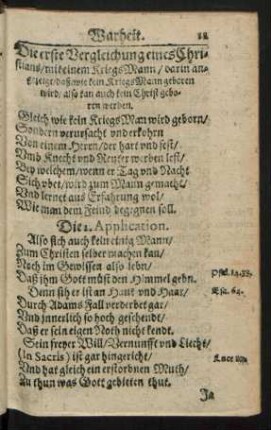 Warheit.
Die erste Vergleichung eines Chri-
stians/ mit einem KriegsMann/ darin an-
wie kein KriegsMann geboren
wird/ also kan auch kein Christ gebo-
ren werden.
Gleich wie kein KriegsMan wird geborn/
Sondern verursacht vnd erkohrn
Von einem Herrn/der hart vnd fest/
Vmb Knecht vnd Reuter werben lest/
Bey welchem/wenn er Tag vnd Nacht
Sich vbet/wird zum Mann gemacht/
Vnd lernet aus Erfahrung wol/
Wie man dem Feind begegnen soll.
Die 1. Application.
Also sich auch kein einig Mann/
Zum Christen selber machen kan/
Noch im Gewissen also lebn/
Daß ihm Gott müst den Himmel gebn.
Psal. 14.
Denn sih er ist an Haut vnd Haar/
Esa. 64.
Durch Adams Fall verderbet gar/
Vnd innerlich so hoch geschendt/
Daß er sein eigen Noth nicht kendt.
Sein freyer Will/Vernunfft vnd Liecht/
(In Sacris) ist gar hingericht/
Vnd hat gleich ein erstordnen Muth/
Zu thun was Gott gebieten thut.
Ja